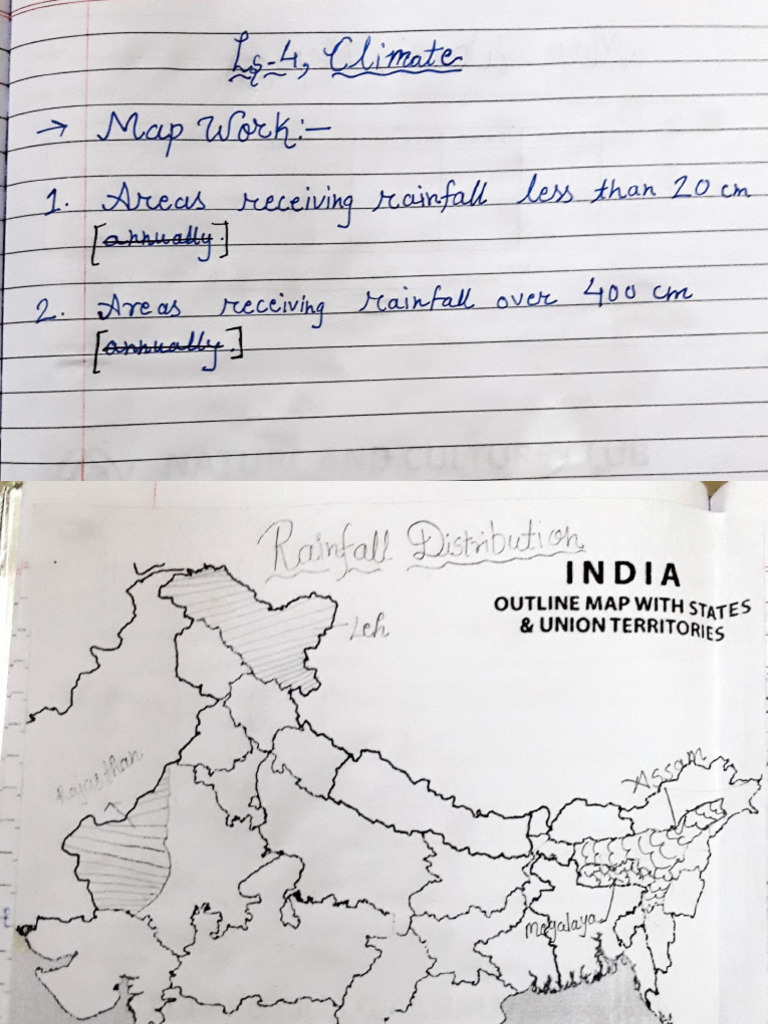 Ls-4, Climate
→ Map Work:-
1. Areas receiving rainfall less than 20 cm
[annually.]
2. Areas receiving rainfall over 400 cm
[annually.]
Rainfall Distribution
INDIA
OUTLINE MAP WITH STATES
& UNION TERRITORIES
Leh
Rajasthan
Assam
Megalaya